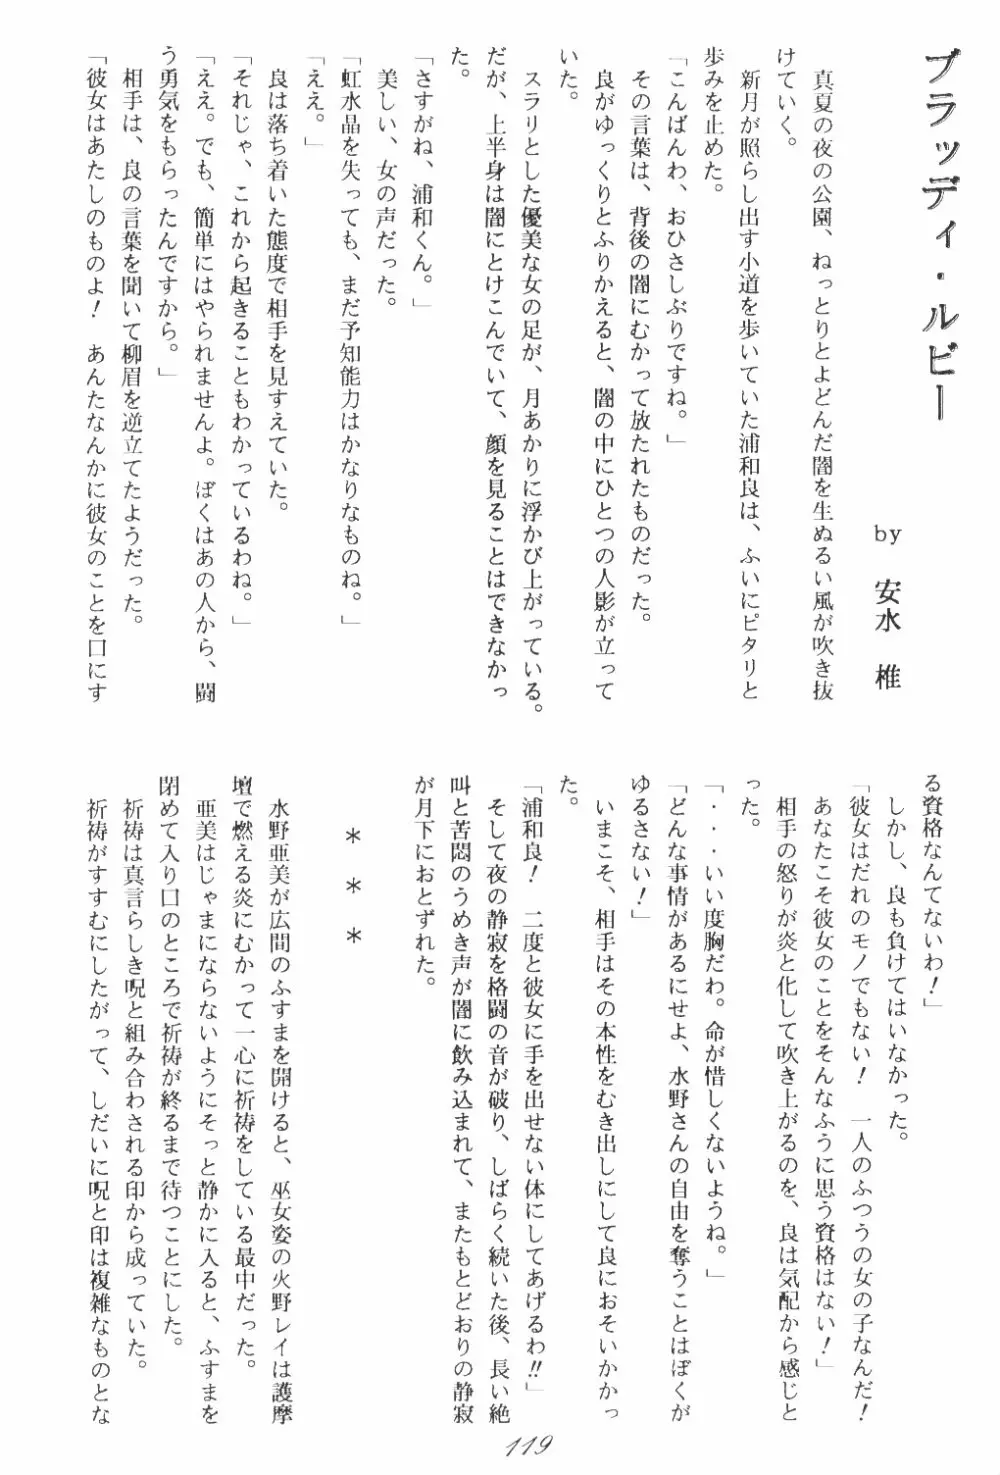 ブラッディ・ルビー
by 安水 椎
真夏の夜の公園、ねっとりとよどんだ闇を生ぬるい風が吹き抜
けていく。
新月が照らし出す小道を歩いていた浦和良は、ふいにピタリと
歩みを止めた。
「こんばんわ、おひさしぶりですね。」
その言葉は、背後の闇にむかって放たれたものだった。
良がゆっくりとふりかえると、闇の中にひとつの人影が立って
いた。
スラリとした優美な女の足が、月あかりに浮かび上がっている。
だが、上半身は闇にとけこんでいて、顔を見ることはできなかっ
た。
「さすがね、浦和くん。」
美しい、女の声だった。
「虹水晶を失っても、まだ予知能力はかなりなものね。」
「ええ。」
良は落ち着いた態度で相手を見すえていた。
「それじゃ、これから起きることもわかっているわね。」
「ええ。でも、簡単にはやられませんよ。ぼくはあの人から、闘
う勇気をもらったんですから。」
相手は、良の言葉を聞いて柳眉を逆立てたようだった。
「彼女はあたしのものよ! あんたなんかに彼女のことを口にす
る資格なんてないわ!」
しかし、良も負けてはいなかった。
「彼女はだれのモノでもない! 一人のふつうの女の子なんだ!
あなたこそ彼女のことをそんなふうに思う資格はない!」
相手の怒りが炎と化して吹き上がるのを、良は気配から感じと
った。
「・・・いい度胸だわ。命が惜しくないようね。」
「どんな事情があるにせよ、水野さんの自由を奪うことはぼくが
ゆるさない!」
いまこそ、相手はその本性をむき出しにして良におそいかかっ
た。
「浦和良! 二度と彼女に手を出せない体にしてあげるわ!!」
そして夜の静寂を格闘の音が破り、しばらく続いた後、長い絶
叫と苦悶のうめき声が闇に飲み込まれて、またもとどおりの静寂
が月下におとずれた。
* * *
水野亜美が広間のふすまを開けると、巫女姿の火野レイは護摩
壇で燃える炎にむかって一心に祈祷をしている最中だった。
亜美はじゃまにならないようにそっと静かに入ると、ふすまを
閉めて入り口のところで祈祷が終るまで待つことにした。
祈祷は真言らしき呪と組み合わされる印から成っていた。
祈祷がすすむにしたがって、しだいに呪と印は複雑なものとな
119